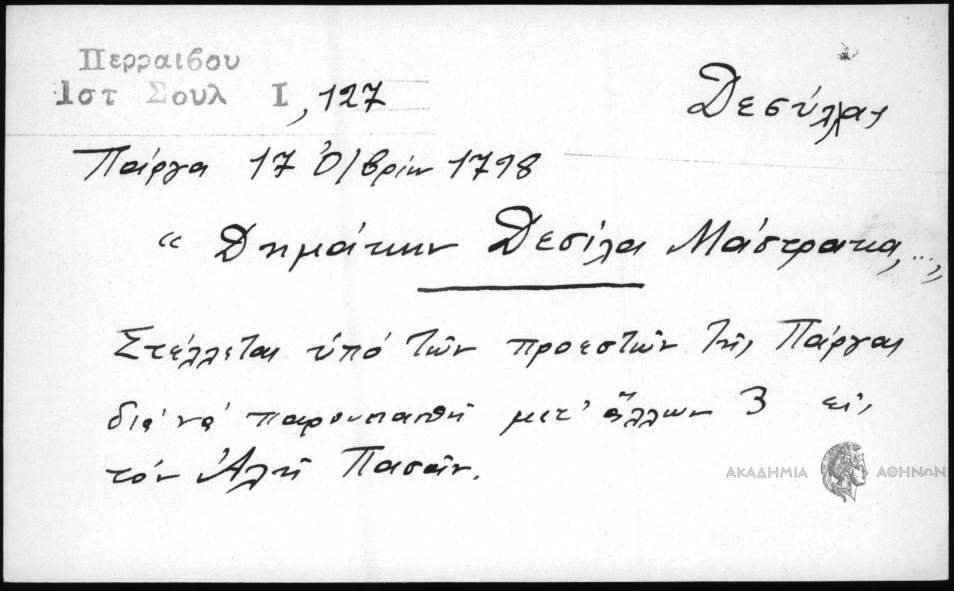 Περραιβου
Ιστ Σουλ Ι, 127
Δεσύλλας
Πάργα 17 Ο/βρίου 1798
“ Δημάκην Δεσίλα Μάστρακα, ...„
Στέλλεται ὑπό τῶν προεστῶν τῆς Πάργας
διά νά παρουσιασθῆ μετ' ἄλλων 3 εἰς
τόν Ἀλῆ Πασᾶν.
ΑΚΑΔΗΜΙΑ ΑΘΗΝΩΝ